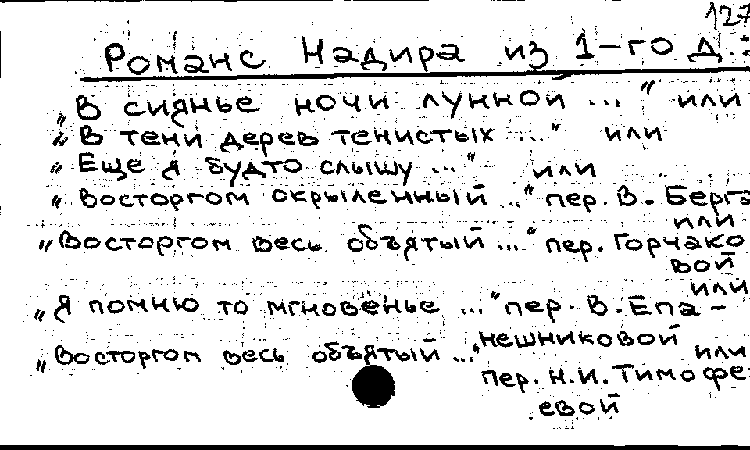 127
Романс Надира из 1-го д.:
„В сиянье ночи лунной ..." или
„В тени дерев тенистых ..." или
„Еще я будто слышу ..." или
„Восторгом окрыленный ..." пер. В. Берга
или
„Восторгом весь объятый ..." пер. Горчако
вой
или
„Я помню то мгновенье ..." пер. В. Епа-
нешниковой
„Восторгом весь объятый ..." или
пер. Н.И. Тимофе
евой